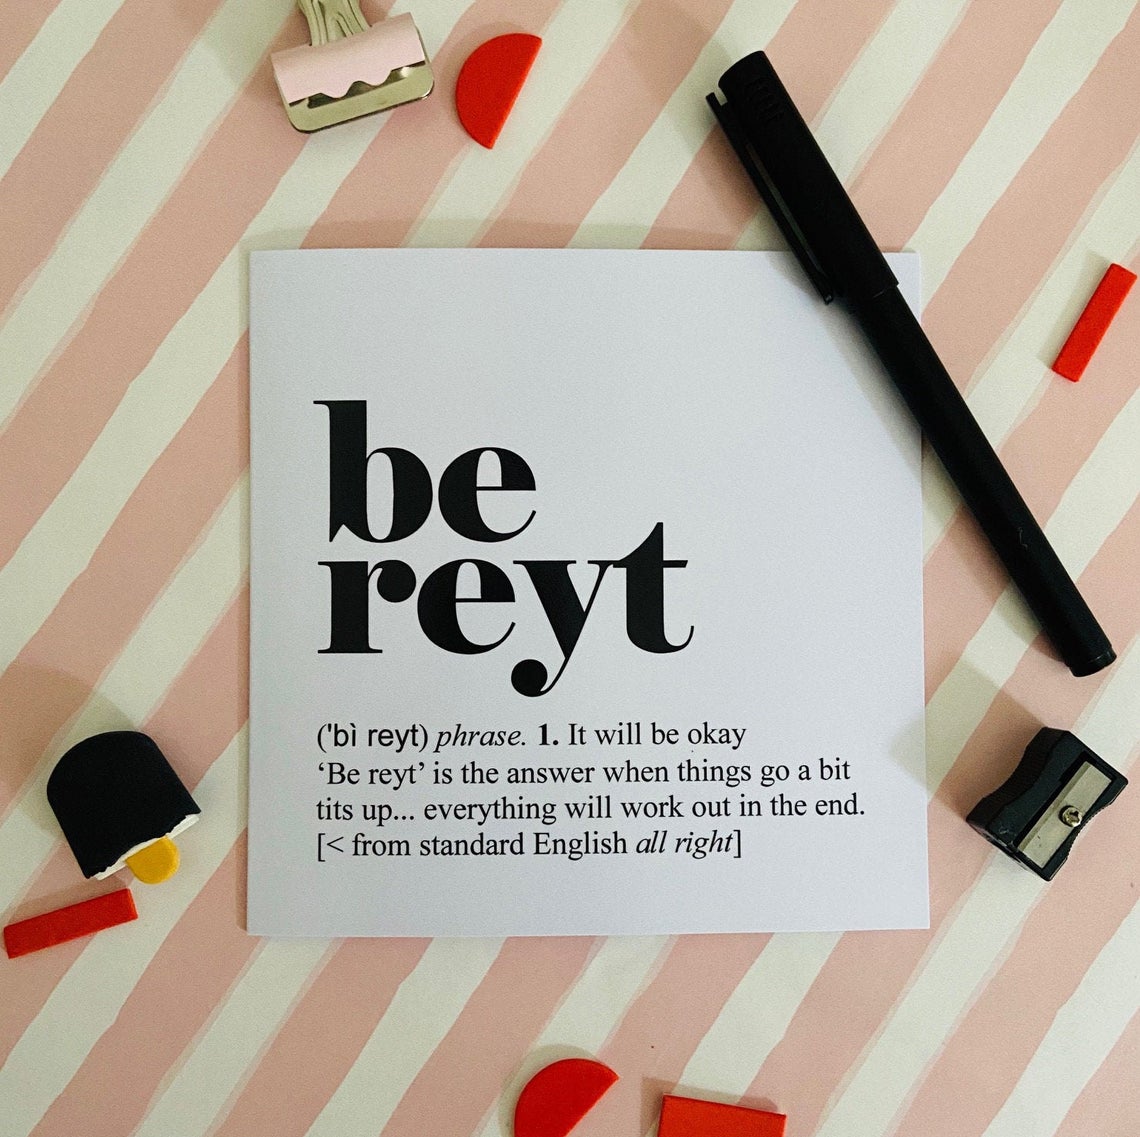 be
reyt
('bì reyt) phrase. 1. It will be okay
‘Be reyt’ is the answer when things go a bit
tits up... everything will work out in the end.
[< from standard English all right]